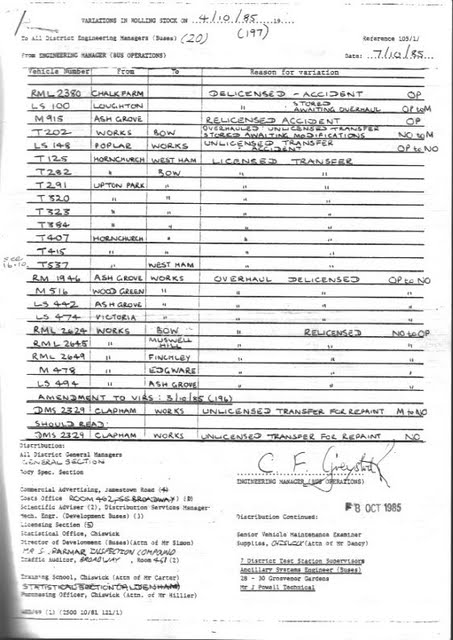 VARIATIONS IN ROLLING STOCK ON 4/10/85 19
(197)
To All District Engineering Managers (Buses) (20)
Reference 103/1/
from ENGINEERING MANAGER (BUS OPERATIONS)
Date: 7/10/85
Vehicle Number From To Reason for variation
RML 2380 CHALK FARM DELICENSED - ACCIDENT OP
LS 100 LOUGHTON " STORED AWAITING OVERHAUL OP to M
M 915 ASH GROVE RELICENSED ACCIDENT OP
T 202 WORKS BOW OVERHAULED UNLICENSED TRANSFER STORED AWAITING MODIFICATIONS NO to M
LS 148 POPLAR WORKS UNLICENSED TRANSFER ACCIDENT OP to NO
T 125 HORNCHURCH WEST HAM LICENSED TRANSFER
T 282 " BOW " "
T 291 UPTON PARK " " "
T 320 " " " "
T 323 " " " "
T 384 " " " "
T 407 HORNCHURCH " " "
T 415 " " " "
SEE 16.10 T 537 WEST HAM " "
RM 1946 ASH GROVE WORKS OVERHAUL DELICENSED OP to NO
M 516 WOOD GREEN " " " "
LS 442 ASH GROVE " " " "
LS 474 VICTORIA " " " "
RML 2624 WORKS BOW " RELICENSED NO to OP
RML 2645 " MUSWELL HILL " " "
RML 2649 " FINCHLEY " " "
M 478 " EDGWARE " " "
LS 494 " ASH GROVE " " "
AMENDMENT TO VIRS : 3/10/85 (196)
DMS 2329 CLAPHAM WORKS UNLICENSED TRANSFER FOR REPAINT M to NO
SHOULD READ:
DMS 2329 CLAPHAM WORKS UNLICENSED TRANSFER FOR REPAINT NO
Distribution:
All District General Managers
GENERAL SECTION
Body Spec. Section
ENGINEERING MANAGER (BUS OPERATIONS)
Commercial Advertising, Jamestown Road (4)
Costs Office ROOM 402, 55 BROADWAY) (2)
8 OCT 1985
Scientific Adviser (2), Distribution Services Manager
Mech. Engr. (Development Buses) (3)
Distribution Continued:
Licensing Section (5)
Statistical Office, Chiswick
Senior Vehicle Maintenance Examiner
Director of Development (Buses)(Attn of Mr Simon)
Supplies, CHISWICK (Attn of Mr Dancy)
MR S. PARMAR INSPECTION COMPOUND
Traffic Auditor, BROADWAY , ROOM
7 District Test Station Supervisors
Ancillary Systems Engineer (Buses)
Training School, Chiswick (Attn of Mr Carter)
28 - 30 Grosvenor Gardens
STATISTICAL SECTION (ALDENHAM)
Mr J Powell Technical
Purchasing Officer, Chiswick (Attn of Mr Hillier)
(2500 10/81 121/1)